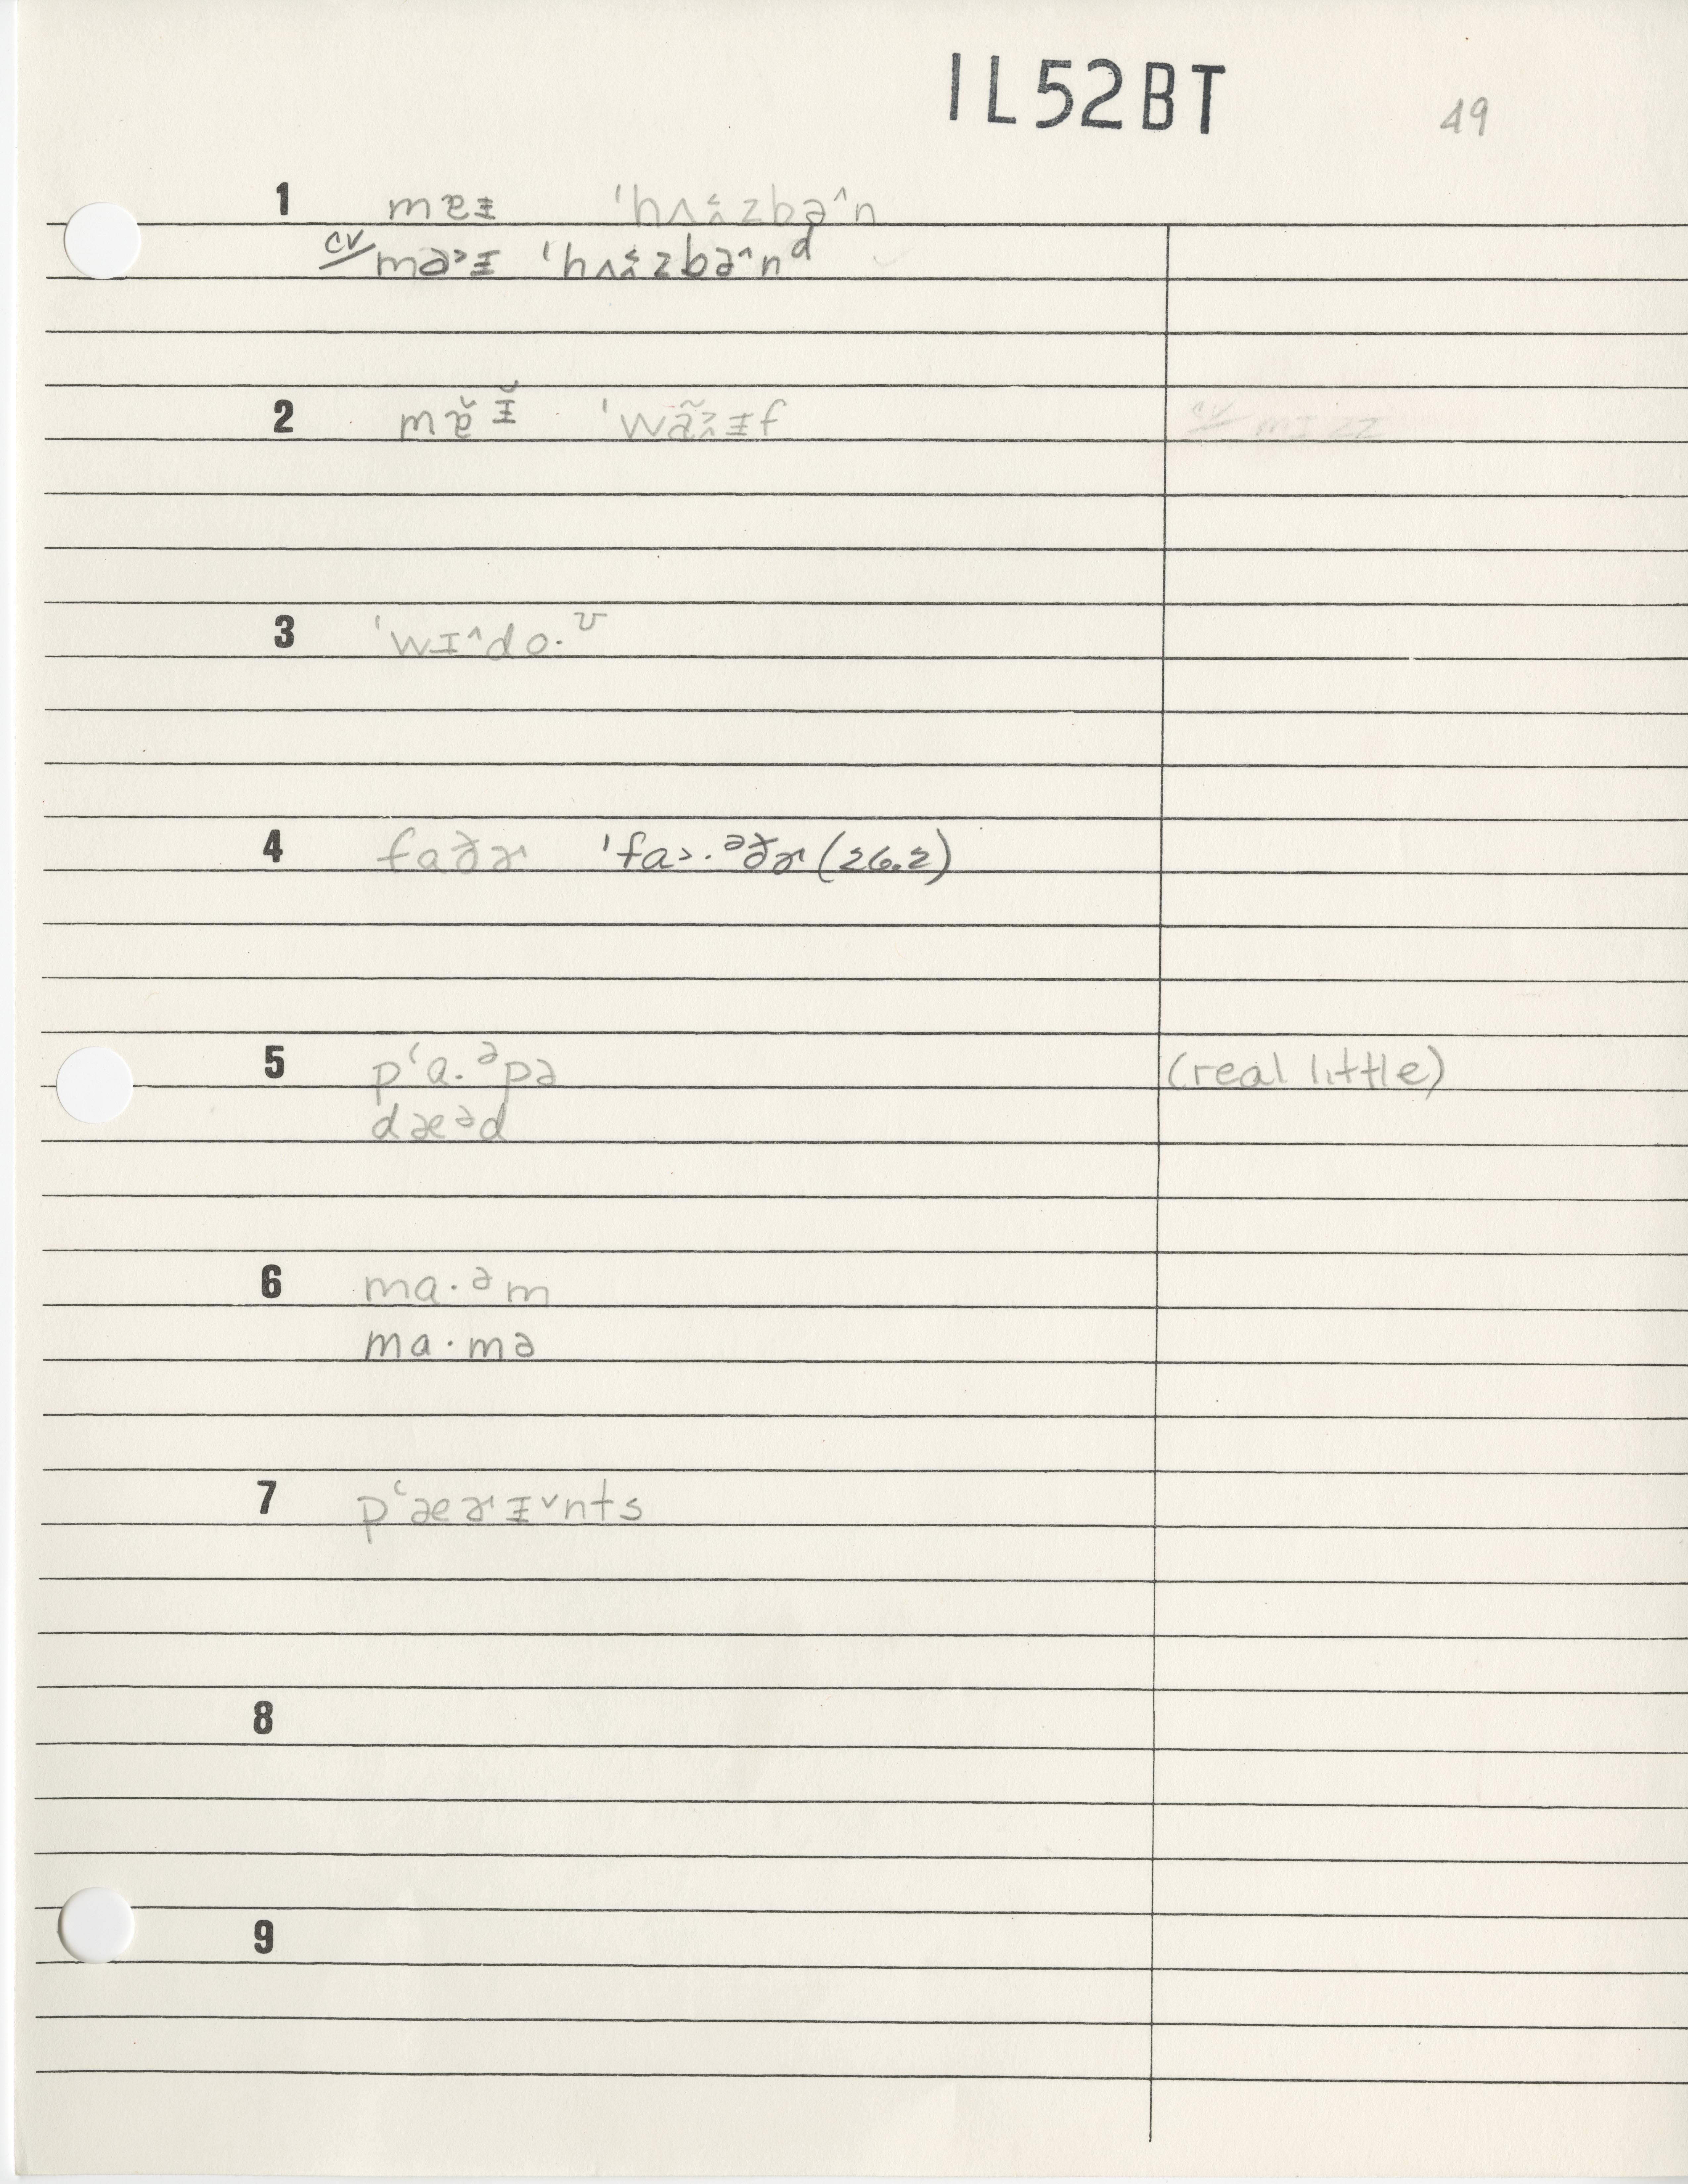 1L52BT 49
1 mɐɪ̵ ˈhʌ˂̭zbə^n
cv/ mə˃ɪ̵ ˈhʌ˂̭zbə^nᵈ
2 mɐ̆ɪ̵̆ ˈwã˃̭ɪ̵f
3 ˈwɪ^do·ᶷ
4 faðɚ ˈfa˃·ᵊðɚ (26.2)
5 pʻa·ᵊpə (real little)
dæᵊd
6 ma·ᵊm
ma·mə
7 pʻæɚɪ̵ˇnts
8
9